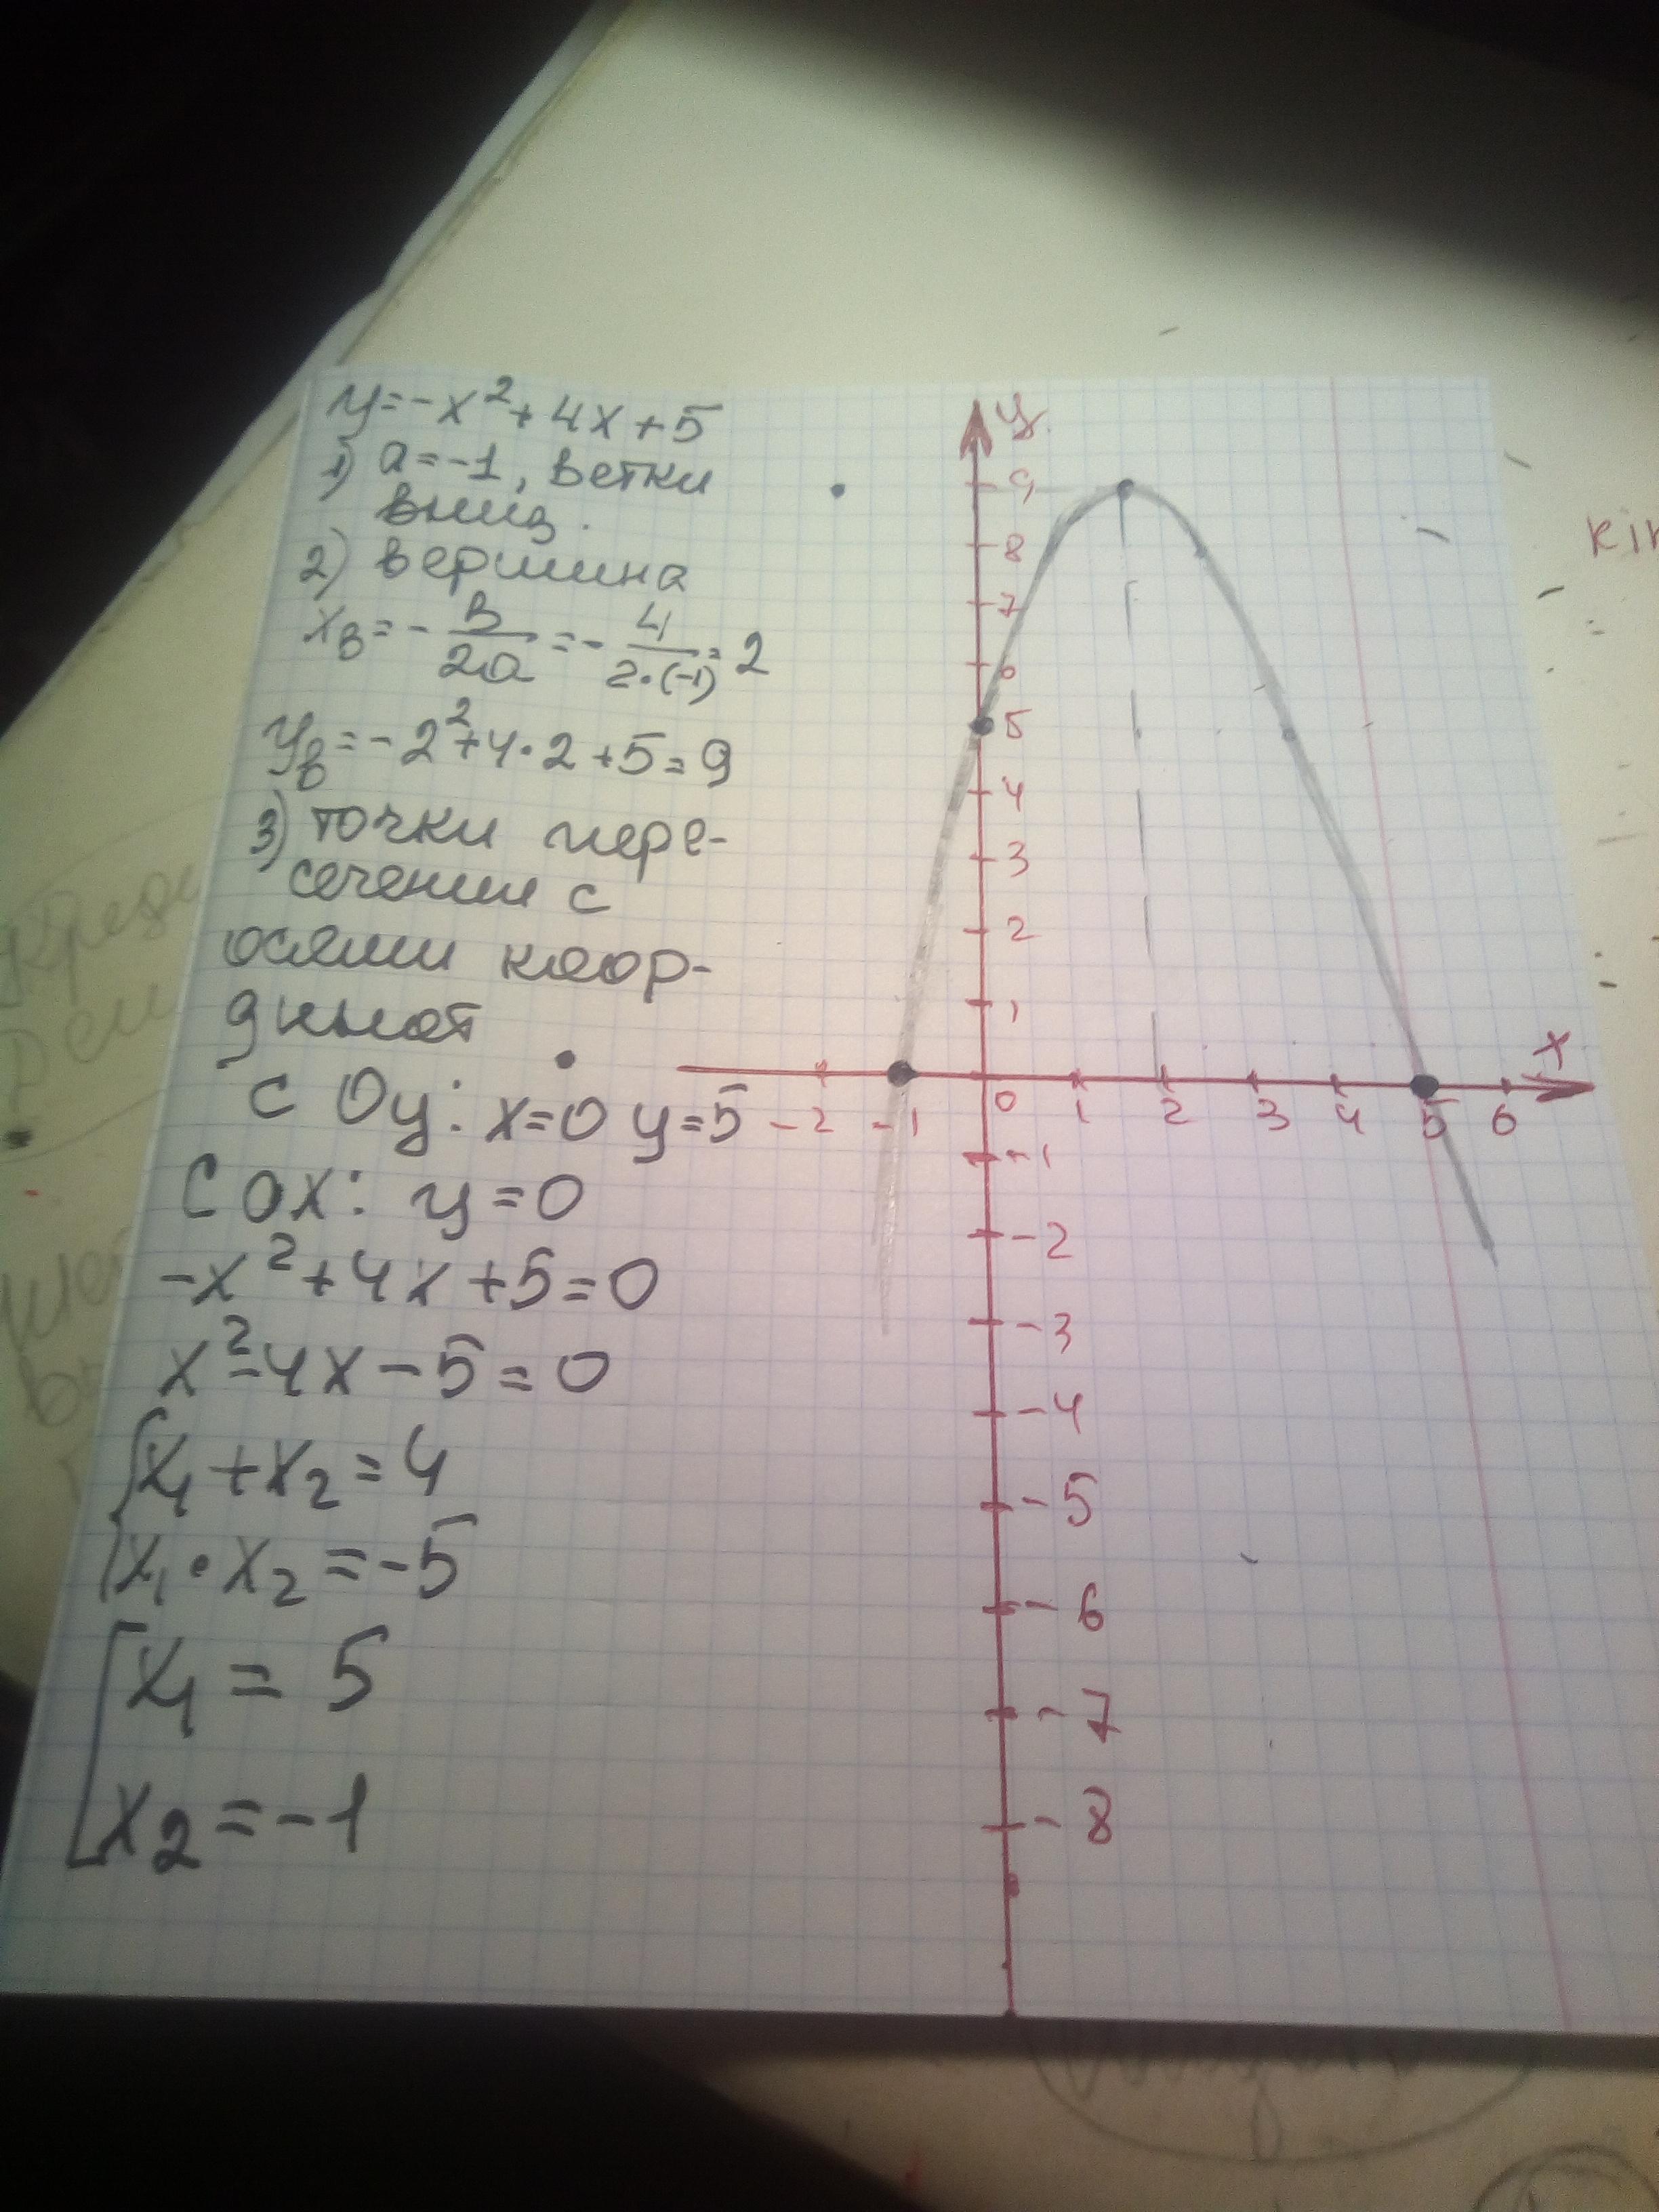 y=-x²+4x+5
1) a=-1, ветки
вниз.
2) вершина
xв=-в/2а=-4/2·(-1)=2
yв=-2²+4·2+5=9
3) точки пере-
сечении с
осями коор-
динат
с Oy: x=0 y=5
С ох: y=0
-x²+4x+5=0
x²-4x-5=0
{x₁+x₂=4
x₁·x₂=-5
[x₁=5
x₂=-1
y
9
8
7
6
5
4
3
2
1
x
-2 -1 0 1 2 3 4 5 6
-1
-2
-3
-4
-5
-6
-7
-8